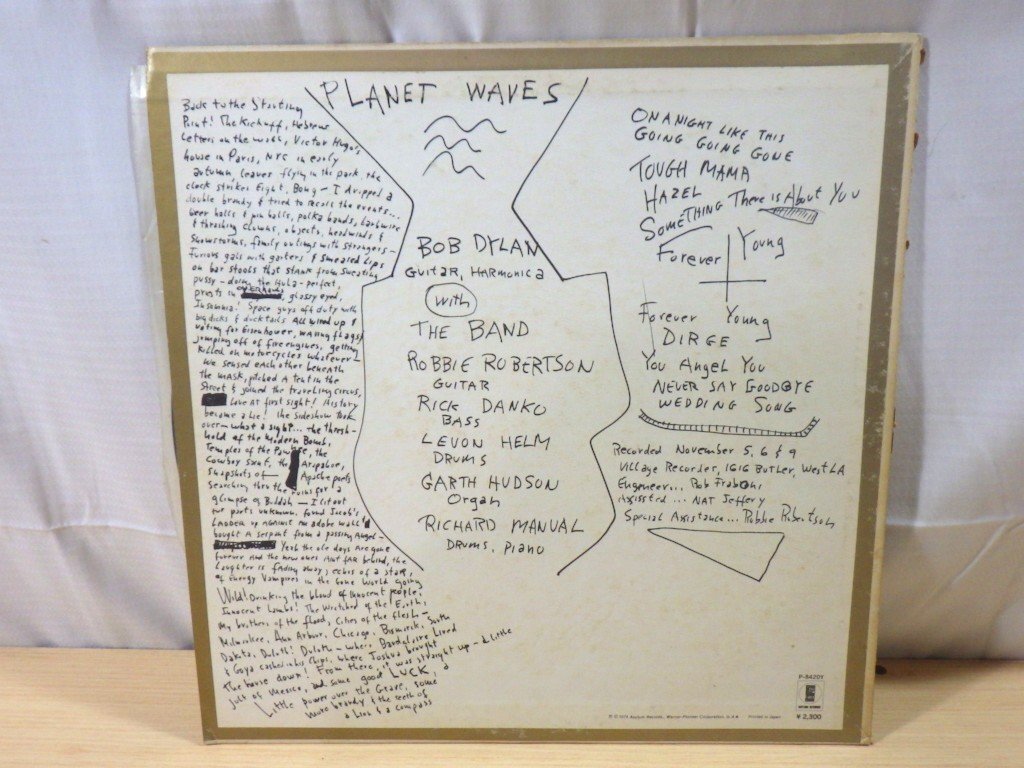 Back to the Starting
Point! The Kickoff, Hebrew
Letters on the wall, Victor Hugo's
house in Paris, NYC in early
autumn, leaves flying in the park, the
clock strikes Eight, Bong – I dropped a
double brandy & tried to recall the events...
beer halls & pin balls, polka bands, barbwire
& thrashing clowns, objects, headwinds &
Snowstorms, family outings with strangers –
Furious gals with garters & Smeared Lips
on bar stools that stank from Sweating
pussy – doing the Hula – perfect,
priests in OVERHAULS, glassy eyed,
Insomnia! Space guys off duty with
big dicks & ducktails All wired up &
voting for Eisenhower, waving flags &
jumping off of fire engines, getting
Killed on motorcycles whatever –
We sensed each other beneath
the MASK, pitched a tent in the
Street & joined the traveling circus,
Love At first sight! History
became a Lie! the sideshow Took
over – what a sight... the thresh-
hold of the Modern Bomb,
Temples of the Pawnee, the
Cowboy Saint, the Arapahoe,
Snapshots of Apache poets
Searching thru the ruins for a
glimpse of Buddah – I lit out
for parts unknown, found Jacob's
LADDER up AGAINST AN adobe wall &
bought A serpent from a passing Angel –
Yeah the ole days Are gone
forever And the new ones Aint fAR behind, the
Laughter is fAding away, echos of a staR,
of Energy Vampires in the Gone World going
Wild! Drinking the blood of innocent people,
Innocent Lambs! The Wretched of the Earth,
My brothers of the flood, Cities of the flesh –
Milwaukee, Ann Arbor, Chicago, Bismarck, South
Dakota, Duluth! Duluth – where Baudelaire Lived
& Goya cashed in his Chips, where Joshua brought
The house down! From there, it was straight up – a Little
jolt of Mexico, and some good LUCK, a
Little power over the Grave, some
more brandy & the teeth of
a Lion & a compass
PLANET WAVES
BOB DYLAN
GUITAR, HARMONICA
with
THE BAND
ROBBIE ROBERTSON
GUITAR
RICK DANKO
BASS
LEVON HELM
DRUMS
GARTH HUDSON
Organ
RICHARD MANUAL
DRUMS, PIANO
ON A NIGHT LIKE THIS
GOING GOING GONE
TOUGH MAMA
HAZEL
SOMETHING There is About You
Forever Young
Forever Young
DIRGE
You Angel You
NEVER SAY GOODBYE
WEDDING SONG
Recorded November 5, 6 & 9
Village Recorder, 1616 Butler, West LA
Engeneer... Rob Fraboni
Assissted... NAT Jeffery
Special Assistance... Robbie Robertson
P-8420Y
ASYLUM RECORDS
¥2,300
℗ © 1974 Asylum Records, Warner-Pioneer Corporation, Printed in Japan